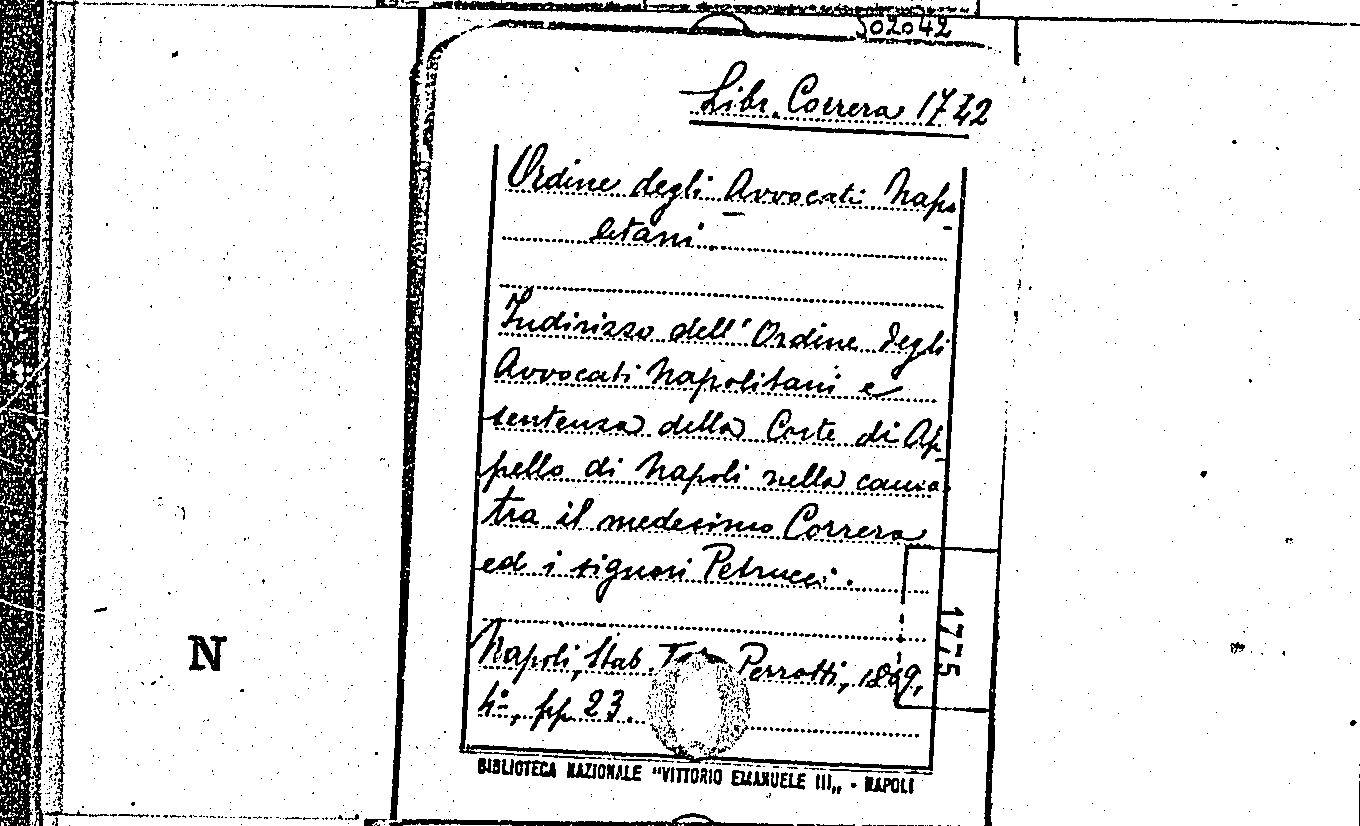 302042
Libr. Correra 1742
Ordine degli Avvocati Napo-
letani.
Indirizzo dell'Ordine degli
Avvocati Napolitani e
sentenza della Corte di Ap-
pello di Napoli nella causa
tra il medesimo Correra
ed i signori Petrucci.
1775
N
Napoli, Stab. Perrotti, 1869,
4°, pp. 23.
BIBLIOTECA NAZIONALE "VITTORIO EMANUELE III„ - NAPOLI